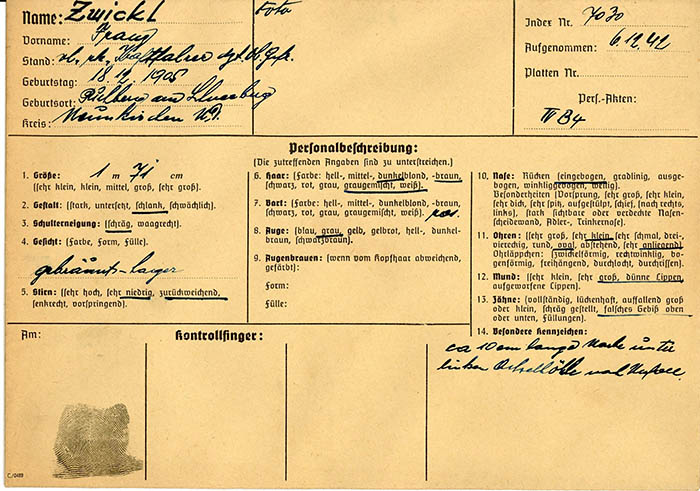 Name: Zwickl
Foto
Vorname: Franz
Stand:
Geburtstag: 18.12.1905
Geburtsort:
Kreis: Neunkirchen N.D.
Index Nr. 7030
Aufgenommen: 6.12.42
Platten Nr.
Pers.-Akten:
IV B4
Personalbeschreibung:
(Die zutreffenden Angaben sind zu unterstreichen.)
1. Größe: 1 m 71 cm
(sehr klein, klein, mittel, groß, sehr groß).
2. Gestalt: (stark, untersetzt, schlank, schwächlich).
3. Schulterneigung: (schräg, waagrecht).
4. Gesicht: (Farbe, Form, Fülle).
gebräunt-
5. Stirn: (sehr hoch, sehr niedrig, zurückweichend,
senkrecht, vorspringend).
6. Haar: (Farbe: hell-, mittel-, dunkelblond, -braun,
schwarz, rot, grau, graugemischt, weiß).
7. Bart: (Farbe: hell-, mittel-, dunkelblond, -braun,
schwarz, rot, grau, graugemischt, weiß). ras.
8. Auge: (blau, grau, gelb, gelbrot, hell-, dunkel-
braun, schwarzbraun).
9. Augenbrauen: (wenn vom Kopfhaar abweichend,
gefärbt):
Form:
Fülle:
10. Nase: Rücken (eingebogen, gradlinig, ausge-
bogen, winkliggebogen, wellig).
Besonderheiten (Vorsprung, sehr groß, sehr klein,
sehr dick, sehr spitz, aufgestülpt, schief, (nach rechts,
links), stark sichtbare oder verdeckte Nasen-
scheidewand, Adler-, Trinkernase).
11. Ohren: (sehr groß, sehr klein, sehr schmal, drei-,
viereckig, rund, oval, abstehend, sehr anliegend)
Ohrläppchen: (zwickelförmig, rechtwinklig, bo-
genförmig, freihängend, durchlocht, durchrissen).
12. Mund: (sehr klein, sehr groß, dünne Lippen,
aufgeworfene Lippen).
13. Zähne: (vollständig, lückenhaft, auffallend groß
oder klein, schräg gestellt, falsches Gebiß oben
oder unten, Füllungen).
14. Besondere Kennzeichen:
ca 10 cm lange Narbe unter
linker
Am:
Kontrollfinger:
C/0489